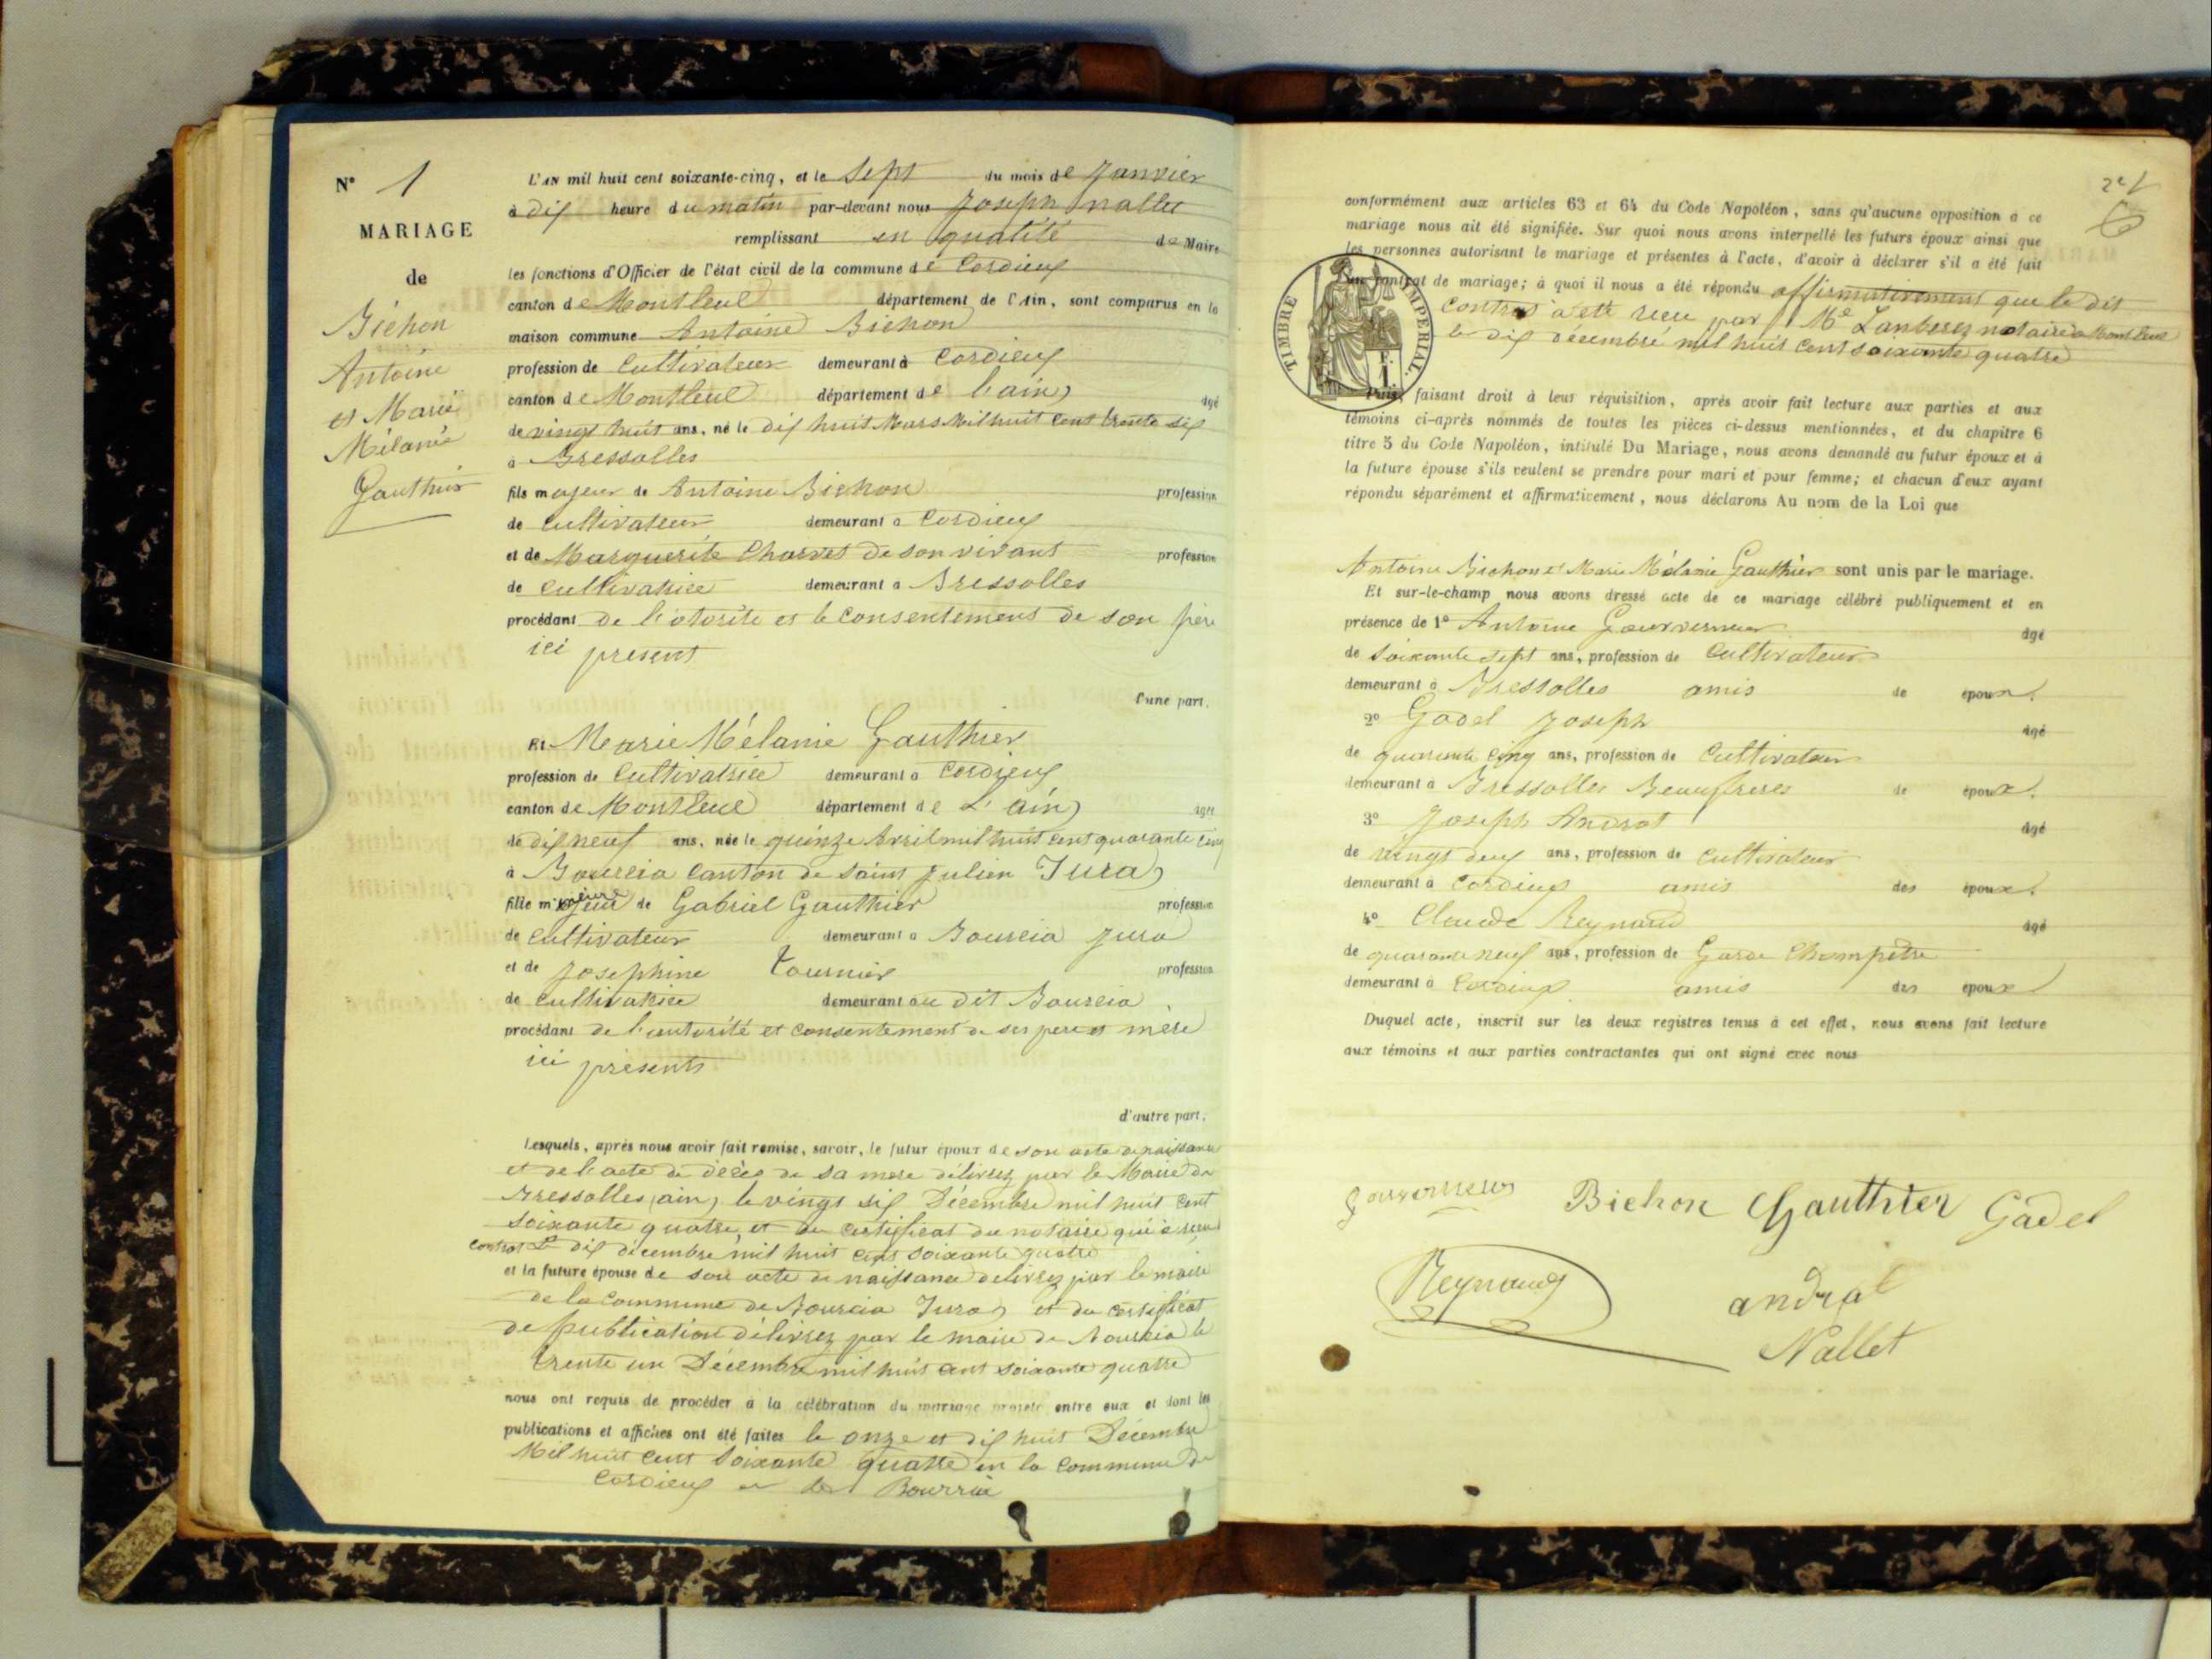 N° 1
MARIAGE
de
Bichon
Antoine
et Marie
Mélanie
Gauthier
L'AN mil huit cent soixante-cinq, et le sept du mois de Janvier
à dix heure du matin par-devant nous Joseph Nallet
remplissant en qualité de Maire
les fonctions d'Officier de l'état civil de la commune de Cordieux
canton de Montluel département de l'Ain, sont comparus en la
maison commune Antoine Bichon
profession de Cultivateur demeurant à Cordieux
canton de Montluel département de l'ain) âgé
de vingt huit ans, né le dix huit Mars Mil huit cent trente six
à Bressolles
fils majeur de Antoine Bichon profession
de Cultivateur demeurant à Cordieux
et de Marguerite Charvet de son vivant profession
de Cultivatrice demeurant à Bressolles
procédant de l'otorité et le Consentement de son père
ici présent
d'une part.
Et Marie Mélanie Gauthier
profession de Cultivatrice demeurant à Cordieux
canton de Montluel département de L'ain) âgée
de dix neuf ans, née le quinze Avril mil huit cent quarante cinq
à Bourcia Canton de Saint Julien Jura)
fille mineure de Gabriel Gauthier profession
de Cultivateur demeurant à Bourcia Jura
et de Josephine Tournier profession
de Cultivatrice demeurant au dit Bourcia
procédant de l'autorité et consentement de ses père et mère
ici présents
d'autre part.
Lesquels, après nous avoir fait remise, savoir, le futur époux de son acte de naissance
et de l'acte de décès de sa mère délivrez par le Maire de
Bressolles (ain) le vingt six Décembre mil huit cent
soixante quatre, et du certificat du notaire qui a reçu
contrat le dix décembre mil huit cent soixante quatre
et la future épouse de son acte de naissance delivrez par le maire
de la Commune de Bourcia Jura) et du certificat
de publication délivrez par le maire de Bourcia le
trente un Décembre mil huit cent soixante quatre
nous ont requis de procéder à la célébration du mariage projeté entre eux et dont les
publications et affiches ont été faites le onze et dix huit Décembre
Mil huit cent soixante quatre en la Commune de
Cordieux et de Bourcia
conformément aux articles 63 et 64 du Code Napoléon, sans qu'aucune opposition à ce
mariage nous ait été signifiée. Sur quoi nous avons interpellé les futurs époux ainsi que
les personnes autorisant le mariage et présentes à l'acte, d'avoir à déclarer s'il a été fait
un contrat de mariage; à quoi il nous a été répondu affirmativement que le dit
Contrat a été reçu par Me notaire a Montluel
le dix décembre mil huit cent soixante quatre
TIMBRE IMPERIAL.
Puis, faisant droit à leur réquisition, après avoir fait lecture aux parties et aux
témoins ci-après nommés de toutes les pièces ci-dessus mentionnées, et du chapitre 6
titre 5 du Code Napoléon, intitulé Du Mariage, nous avons demandé au futur époux et à
la future épouse s'ils veulent se prendre pour mari et pour femme; et chacun d'eux ayant
répondu séparément et affirmativement, nous déclarons Au nom de la Loi que
Antoine Bichon et Marie Mélanie Gauthier sont unis par le mariage.
Et sur-le-champ nous avons dressé acte de ce mariage célébré publiquement et en
présence de 1° Antoine Gouverneur âgé
de soixante sept ans, profession de Cultivateur
demeurant à Bressolles amis de époux.
2° Gadel Joseph âgé
de quarante cinq ans, profession de Cultivateur
demeurant à Bressolles Beaufreres de époux.
3° Joseph Andrat âgé
de vingt deux ans, profession de Cultivateur
demeurant à Cordieux amis des époux.
4° Claude Reynaud âgé
de quarante neuf ans, profession de Garde Champêtre
demeurant à Cordieux amis des époux
Duquel acte, inscrit sur les deux registres tenus à cet effet, nous avons fait lecture
aux témoins et aux parties contractantes qui ont signé avec nous
Gouverneur Bichon Gauthier Gadel
Reynaud andral
Nallet